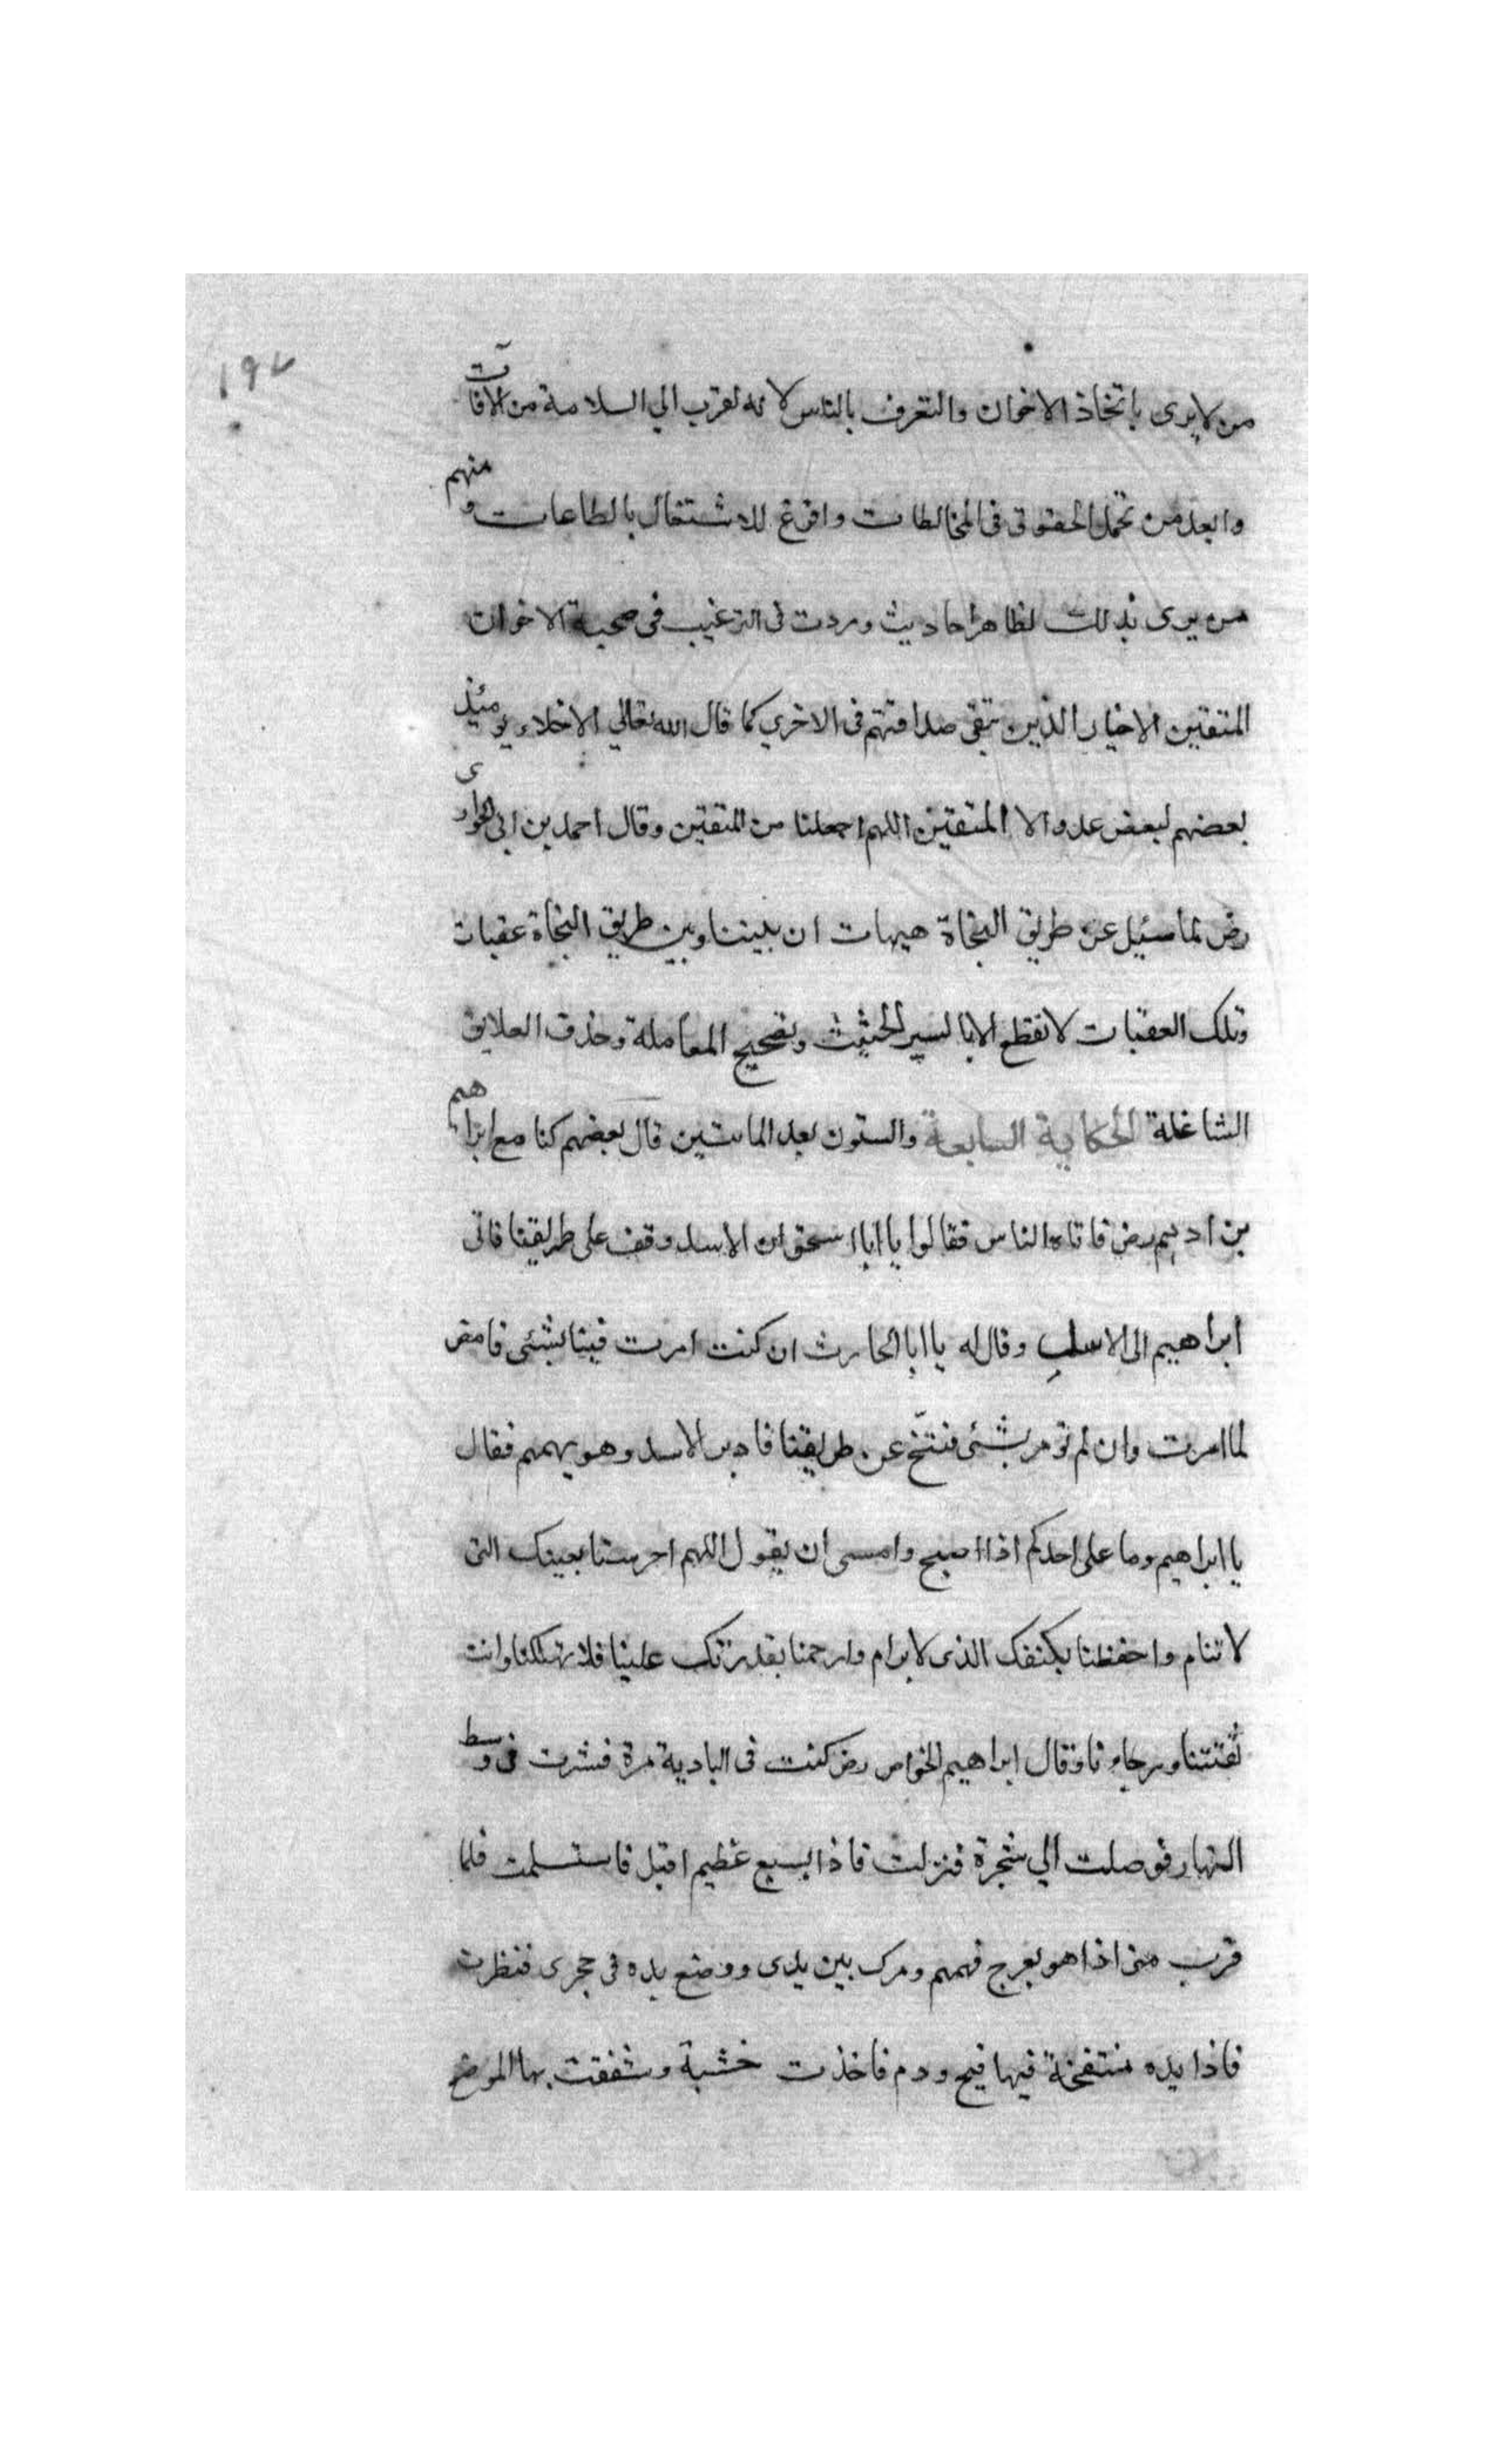 ١٩٧
من لا يرى باتخاذ الاخوان والتعرف بالناس لانه لقرب الي السلامة من الآفات
وابعد من تحمل الحقوق فى المخالطات وافرغ للاشتغال بالطاعات ومنهم
من يرى بذلك لظاهر احاديث وردت فى الترغيب فى صحبة الاخوان
المتقين الاخيار الذين تبقى صداقتهم فى الاخري كما قال الله تعالي الاخلاء يومئذ
بعضهم لبعض عدو الا المتقين اللهم اجعلنا من المتقين وقال احمد بن ابى الحوارى
رض لما سئيل عن طريق النجاة هيهات ان بيننا وبين طريق النجاة عقبات
وتلك العقبات لا تقطع الا بالسير الحثيث وتصحيح المعاملة وحذف العلايق
الشاغلة الحكاية السابعة والستون بعد المائتين قال بعضهم كنا مع ابراهيم
بن ادهم رض فاتاه الناس فقالوا يا ابا اسحق ان الاسد وقف على طريقنا فاتى
ابراهيم الى الاسد وقال له يا ابا الحارث ان كنت امرت فينا بشئى فامض
لما امرت وان لم تومر بشئى فتنحّ عن طريقنا فادبر الاسد وهو يهمهم فقال
يا ابراهيم وما على احدكم اذا اصبح وامسى ان يقول اللهم احرسنا بعينك التى
لا تنام واحفظنا بكنفك الذى لا يرام وارحمنا بقدرتك علينا فلا تهلكنا وانت
ثقتنا ورجاونا وقال ابراهيم الخواص رض كنت فى البادية مرة فسرت فى وسط
النهار فوصلت الي شجرة فنزلت فاذا بسبع عظيم اقبل فاستسلمت فلما
قرب منى اذا هو يعرج فهمهم وبرك بين يدى ووضع يده فى حجرى فنظرت
فاذا يده منتفخة فيها قيح ودم فاخذت خشبة وشققت بها الموضع